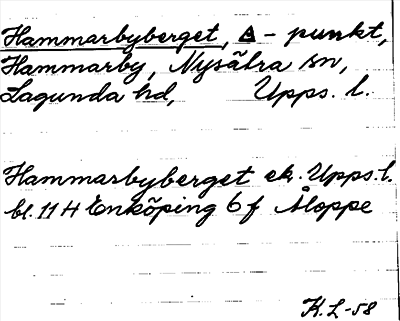 Hammarbyberget, △ - punkt,
Hammarby, Nysätra sn,
Lagunda hd, Upps. l.
Hammarbyberget ek. Upps. l.
bl. 11 H Enköping 6 f Åloppe
K.L-58